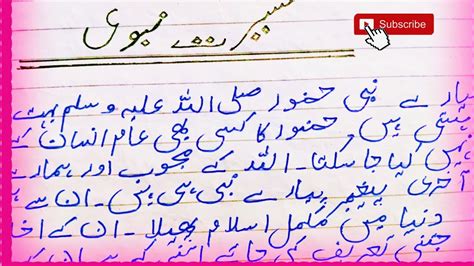 سیرت نبوی
Subscribe
پیارے نبی حضور صلی اللہ علیہ وسلم بہت
ہیں۔ حضور کا کسی بھی عام انسان کے
نہیں کیا جا سکتا۔ اللہ کے محبوب اور ہمارے
آخری پیغمبر ہمارے نبی ہی ہیں۔ ان سے ہی
دنیا میں مکمل اسلام پھیلا۔ ان کے
جتنی تعریف کی جائے اتنی کم ہے